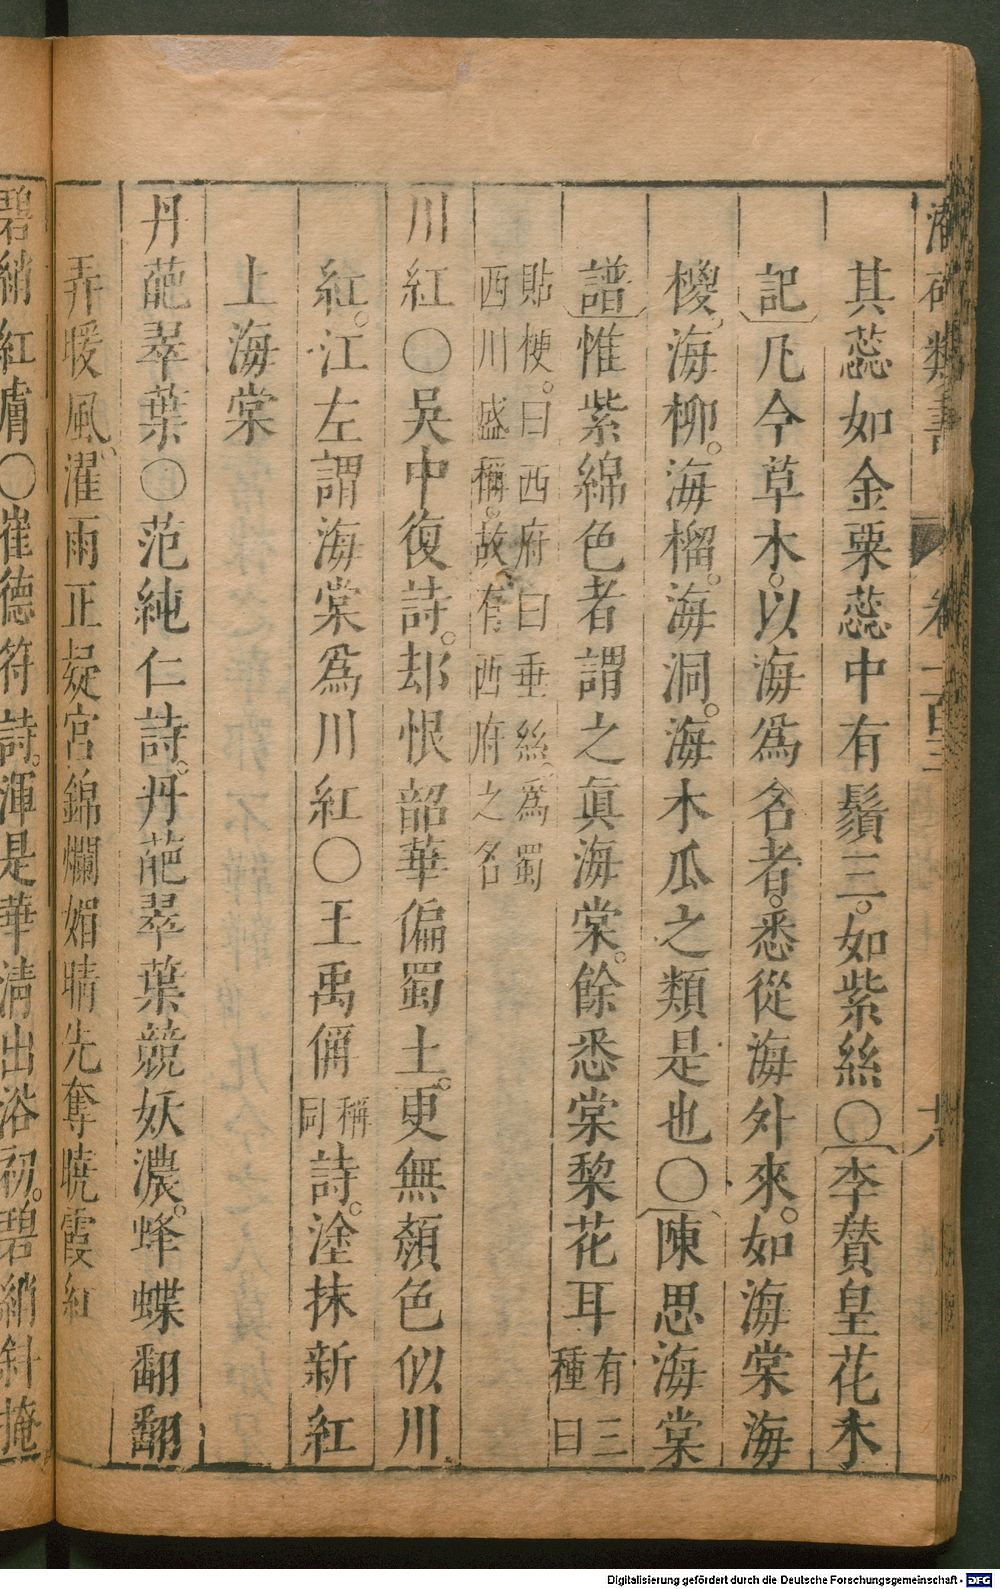 潛確類書 卷一百三 十六
其蕊如金粟蕊中有鬚三。如紫絲〇李贊皇花木
記凡今草木。以海為名者。悉從海外來。如海棠海
㮶、海柳。海榴。海洞。海木瓜之類是也〇陳思海棠
譜惟紫綿色者謂之真海棠。餘悉棠棃花耳有三種曰
貼梗。曰西府曰垂絲。為蜀
西川盛稱。故有西府之名
川紅〇吳中復詩。却恨韶華偏蜀土。更無顏色似川
紅。江左謂海棠為川紅〇王禹偁稱同詩。塗抹新紅
上海棠
丹葩翠葉〇范純仁詩。丹葩翠葉競妖濃。蜂蝶翻翻
弄暖風、濯雨正疑宮錦爛媚晴先奪曉霞紅
碧綃紅膚〇崔德符詩。渾是華清出浴初。碧綃斜掩
Digitalisierung gefördert durch die Deutsche Forschungsgemeinschaft - DFG